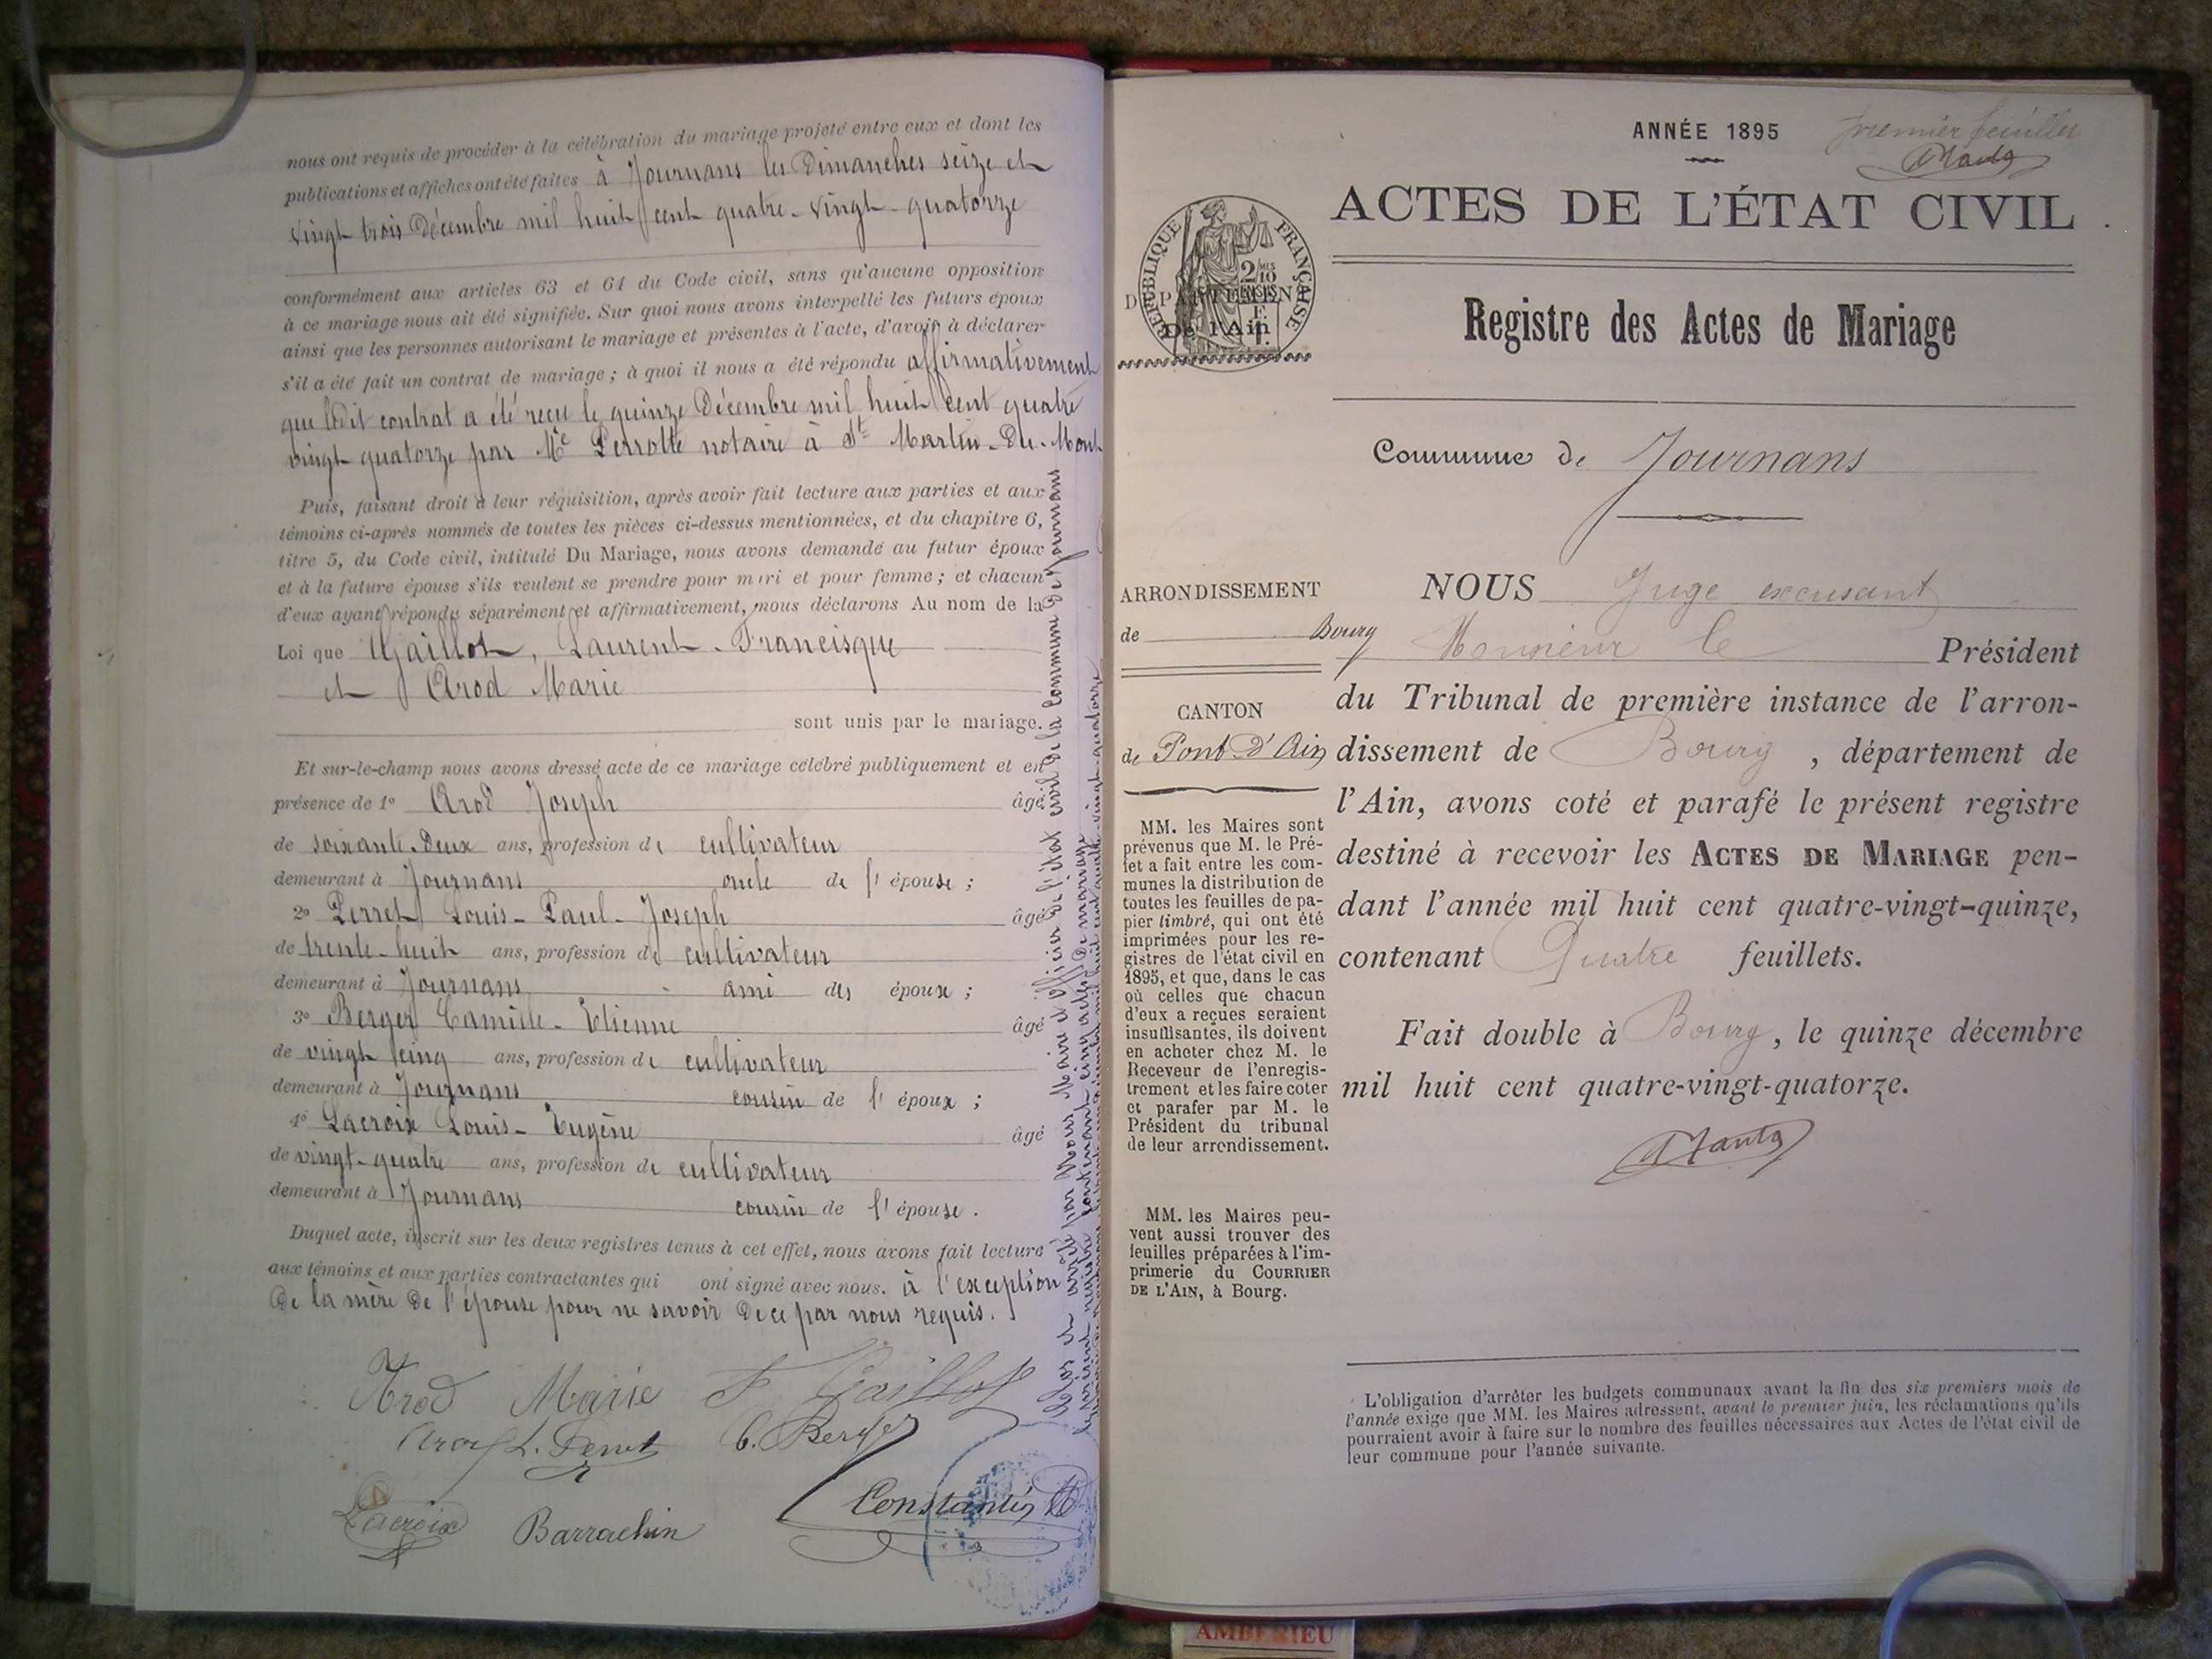 nous ont requis de procéder à la célébration du mariage projeté entre eux et dont les
publications et affiches ont été faites à Journans les Dimanches seize et
vingt trois Décembre mil huit cent quatre-vingt-quatorze
conformément aux articles 63 et 64 du Code civil, sans qu'aucune opposition
à ce mariage nous ait été signifiée. Sur quoi nous avons interpellé les futurs époux
ainsi que les personnes autorisant le mariage et présentes à l'acte, d'avoir à déclarer
s'il a été fait un contrat de mariage ; à quoi il nous a été répondu affirmativement
que ledit contrat a été reçu le quinze Décembre mil huit cent quatre
vingt quatorze par Me Perrotte notaire à St Martin-Du-Mont
Puis, faisant droit à leur réquisition, après avoir fait lecture aux parties et aux
témoins ci-après nommés de toutes les pièces ci-dessus mentionnées, et du chapitre 6,
titre 5, du Code civil, intitulé Du Mariage, nous avons demandé au futur époux
et à la future épouse s'ils veulent se prendre pour mari et pour femme ; et chacun
d'eux ayant répondu séparément et affirmativement, nous déclarons Au nom de la
Loi que Gaillot, Laurent-Francisque
et Arod Marie
sont unis par le mariage.
Et sur-le-champ nous avons dressé acte de ce mariage célébré publiquement et en
présence de 1° Arod Joseph âgé
de soixante-Deux ans, profession de cultivateur
demeurant à Journans oncle de l'épouse ;
2° Perret Louis-Paul-Joseph âgé
de trente-huit ans, profession de cultivateur
demeurant à Journans ami des époux ;
3° Berger Camille-Etienne âgé
de vingt cinq ans, profession de cultivateur
demeurant à Journans cousin de l'époux ;
4° Lacroix Louis-Eugène âgé
de vingt-quatre ans, profession de cultivateur
demeurant à Journans cousin de l'épouse.
Duquel acte, inscrit sur les deux registres tenus à cet effet, nous avons fait lecture
aux témoins et aux parties contractantes qui ont signé avec nous. à l'exception
De la mère De l'épouse pour ne savoir De ce par nous requis.
Arod Marie F Gaillot
Arod L. Perret C. Berger
Lacroix Barrachin Constantin
ANNÉE 1895 premier feuillet
ACTES DE L'ÉTAT CIVIL
RÉPUBLIQUE FRANÇAISE
2/10 MES
DÉPARTEMENT
De l'Ain
Registre des Actes de Mariage
Commune de Journans
ARRONDISSEMENT
de Bourg
CANTON
de Pont-d'Ain
MM. les Maires sont
prévenus que M. le Pré-
fet a fait entre les com-
munes la distribution de
toutes les feuilles de pa-
pier timbré, qui ont été
imprimées pour les re-
gistres de l'état civil en
1895, et que, dans le cas
où celles que chacun
d'eux a reçues seraient
insuffisantes, ils doivent
en acheter chez M. le
Receveur de l'enregis-
trement et les faire coter
et parafer par M. le
Président du tribunal
de leur arrondissement.
MM. les Maires peu-
vent aussi trouver des
feuilles préparées à l'im-
primerie du COURRIER
DE L'AIN, à Bourg.
NOUS Juge excusant
Monsieur le Président
du Tribunal de première instance de l'arron-
dissement de Bourg, département de
l'Ain, avons coté et parafé le présent registre
destiné à recevoir les ACTES DE MARIAGE pen-
dant l'année mil huit cent quatre-vingt-quinze,
contenant Quatre feuillets.
Fait double à Bourg, le quinze décembre
mil huit cent quatre-vingt-quatorze.
L'obligation d'arrêter les budgets communaux avant la fin des six premiers mois de
l'année exige que MM. les Maires adressent, avant le premier juin, les réclamations qu'ils
pourraient avoir à faire sur le nombre des feuilles nécessaires aux Actes de l'état civil de
leur commune pour l'année suivante.
AMBERIEU